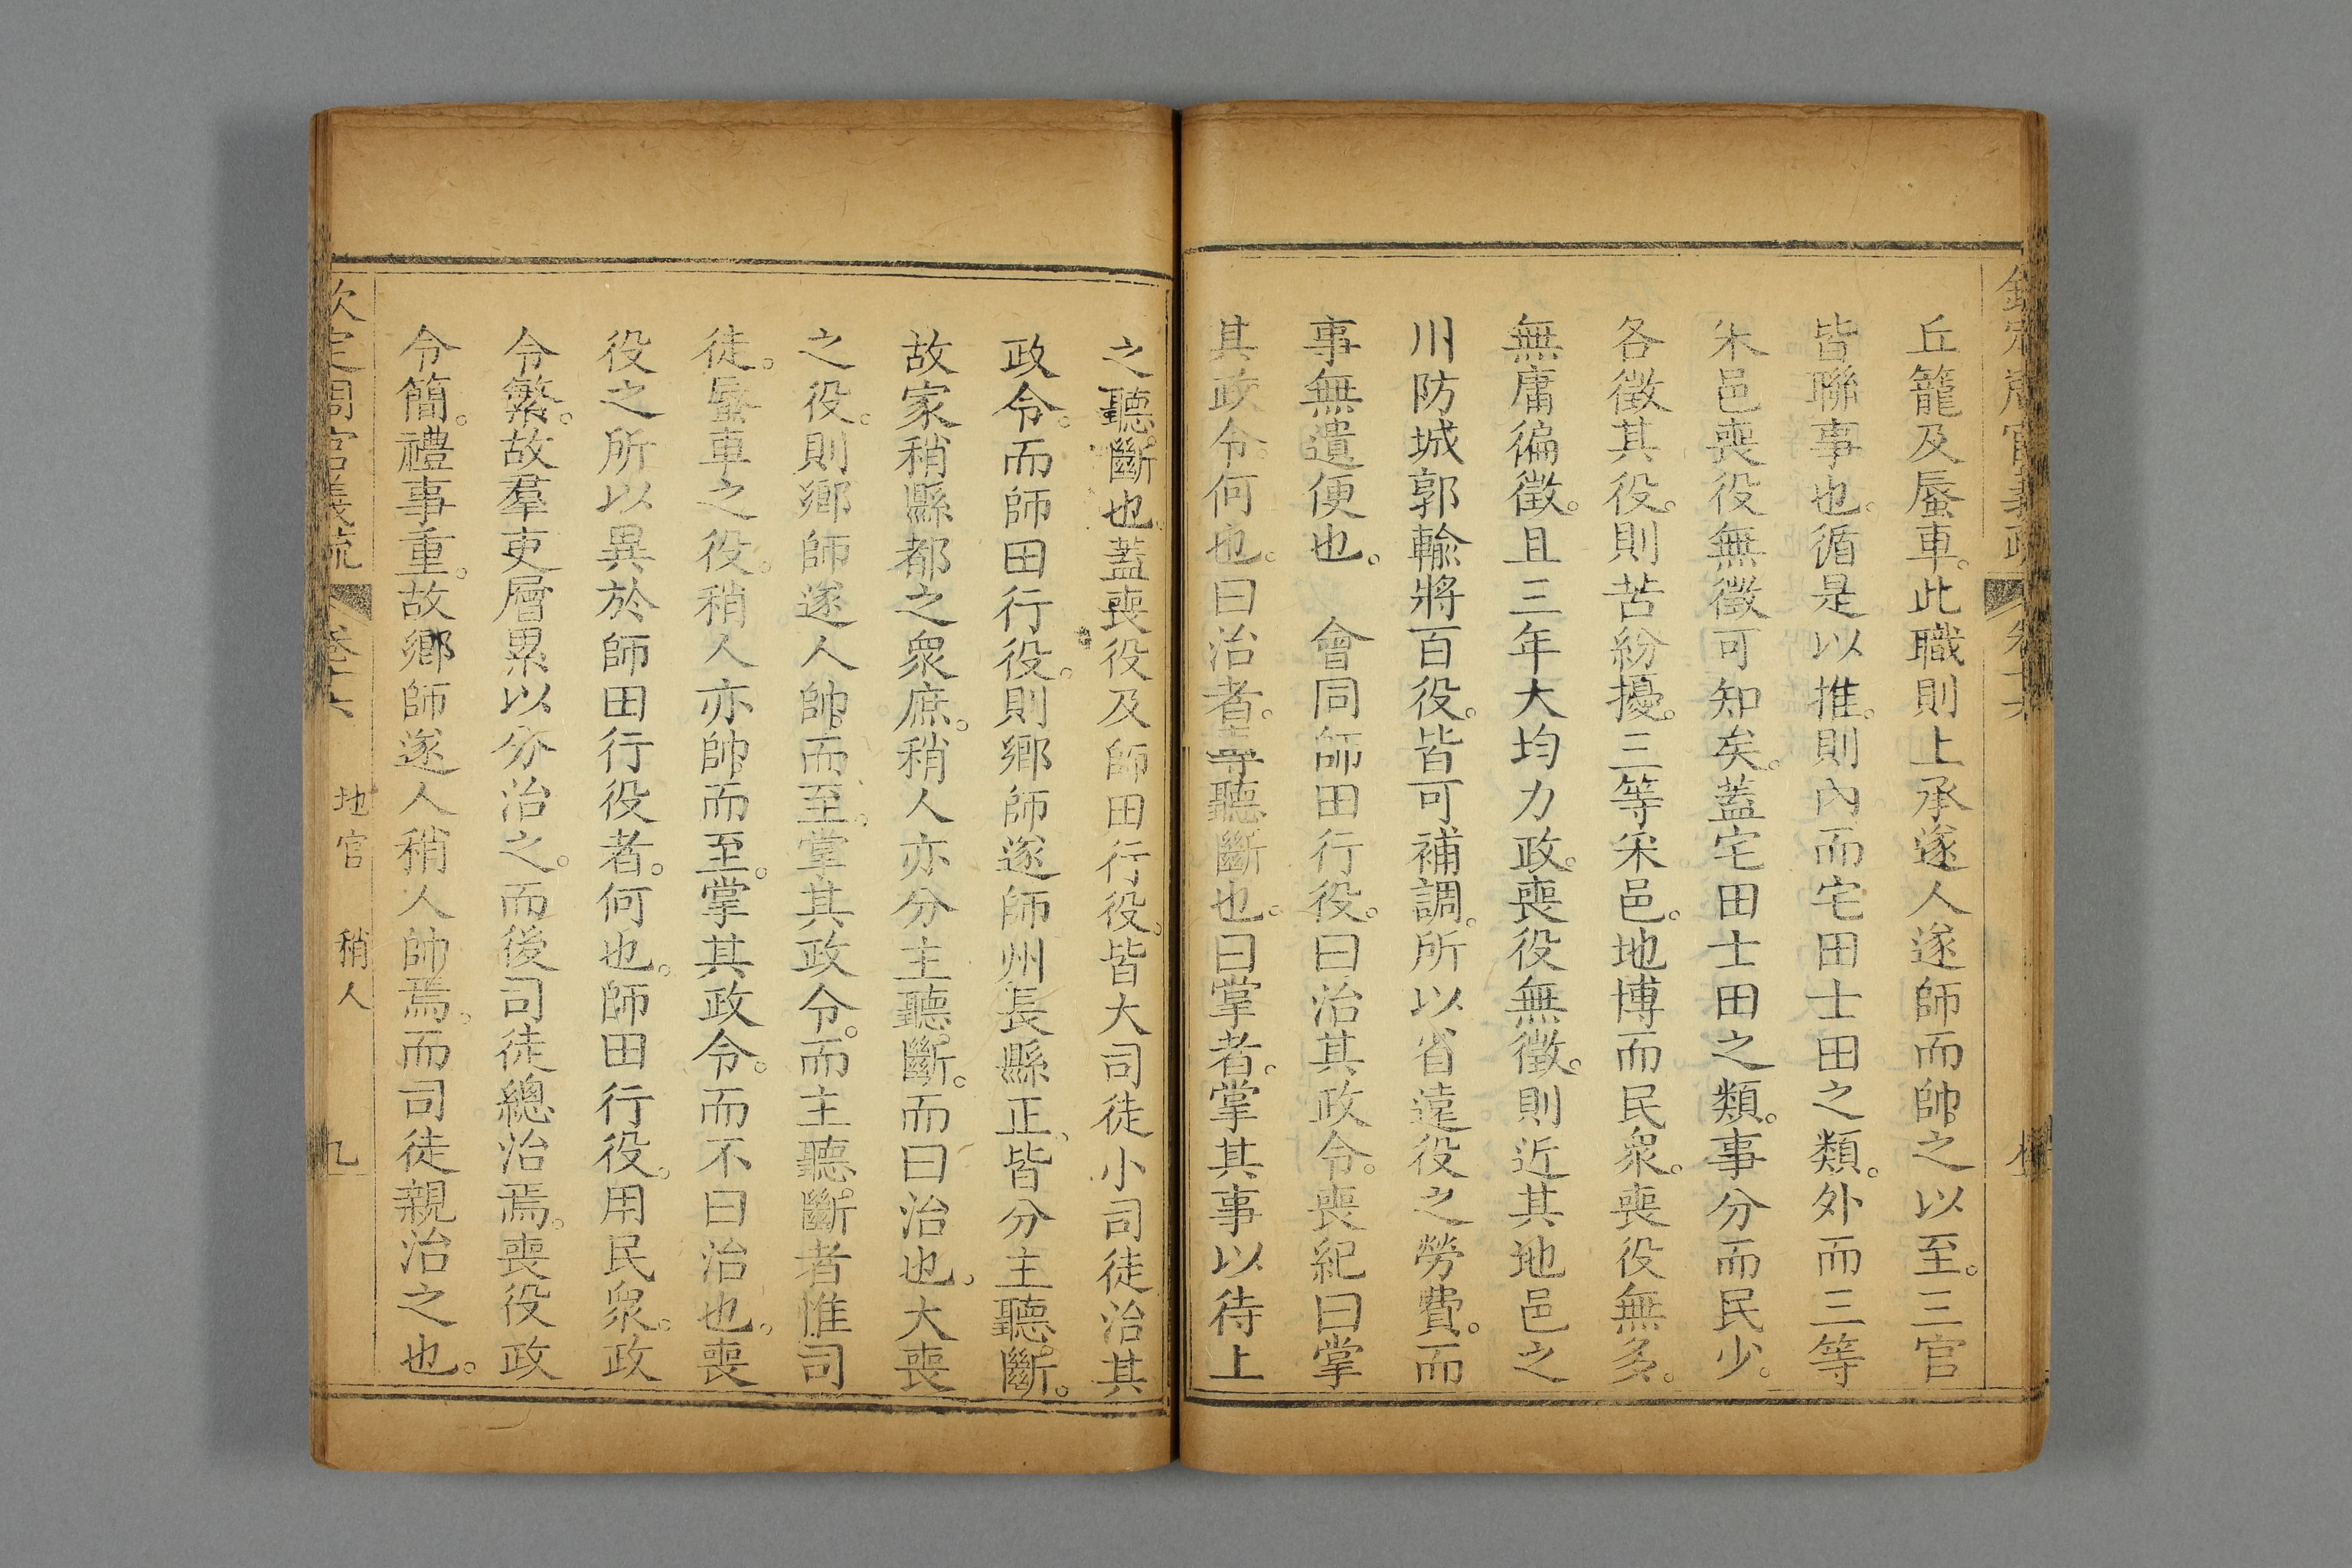 丘籠及蜃車。此職則上承遂人遂師而帥之以至。三官
皆聯事也。循是以推。則內而宅田士田之類。外而三等
采邑喪役無徵可知矣。蓋宅田士田之類。事分而民少。
各徵其役。則苦紛擾。三等采邑。地博而民衆。喪役無多。
無庸徧徵。且三年大均力政。喪役無徵。則近其地邑之
川防城郭輸將百役。皆可補調。所以省遠役之勞費。而
事無遺便也。　會同師田行役。曰治其政令。喪紀曰掌
其政令。何也。曰治者。專聽斷也。曰掌者。掌其事以待上
之聽斷也。蓋喪役及師田行役。皆大司徒小司徒治其
政令。而師田行役。則鄉師遂師州長縣正。皆分主聽斷。
故家稍縣都之衆庶。稍人亦分主聽斷。而曰治也。大喪
之役。則鄉師遂人帥而至。掌其政令。而主聽斷者惟司
徒。蜃車之役。稍人亦帥而至。掌其政令。而不曰治也。喪
役之所以異於師田行役者。何也。師田行役。用民衆。政
令繁。故羣吏層累以分治之。而後司徒總治焉。喪役政
令簡。禮事重。故鄉師遂人稍人帥焉。而司徒親治之也。
欽定周官義疏
卷十六
地官　稍人
九